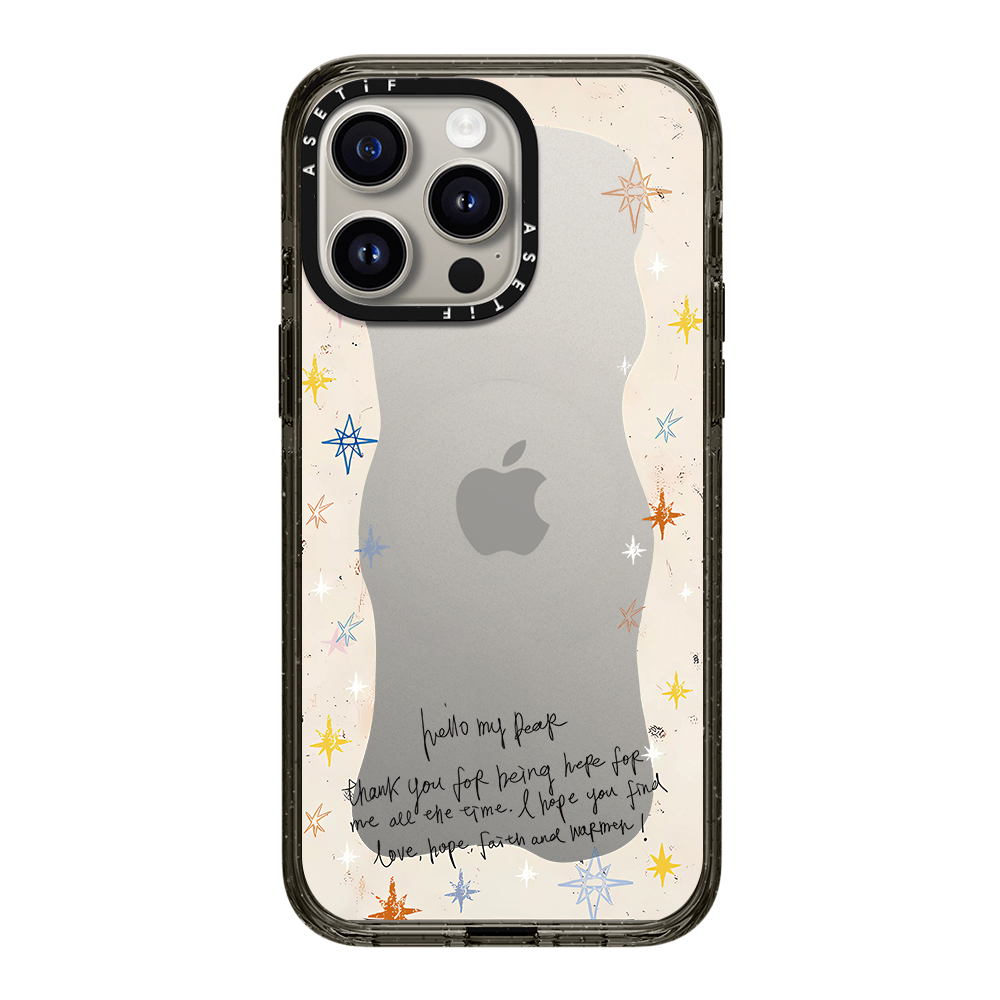 ASETiF
ASETiF
hello my Dear
thank you for being here for
me all the time. I hope you find
love, hope, faith and warmth!